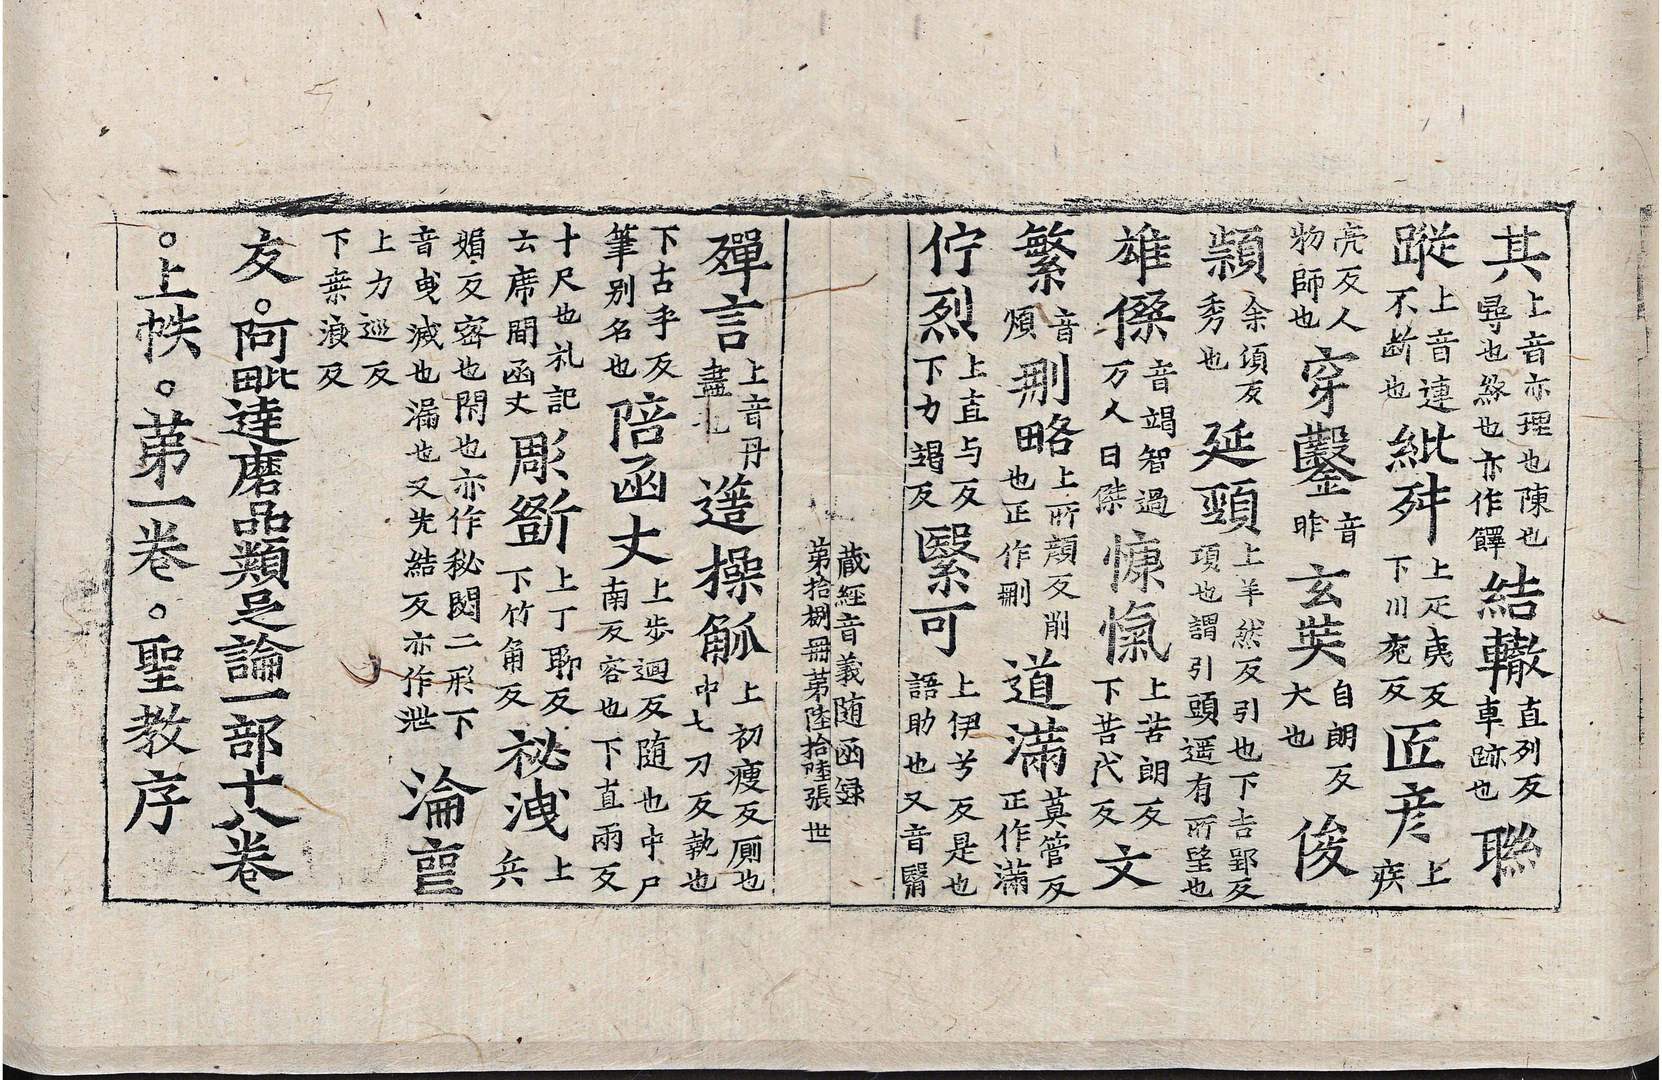 其上音亦理也陳也尋也終也亦作結轍直列反車跡也聯
蹤上音連不斷也紕舛上疋夷反下川兖反匠彦上疾
亮反人物師也穿鑿音昨玄奘自朗反大也俊
頴余頃反秀也延頸上羊然反引也下吉郢反項也謂引頭遥有所望也
雄傑音竭智過万人曰傑慷愾上苦朗反下苦代反文
繁音煩刪略上所顔反削也正作刪道滿莫管反正作滿
佇烈上直与反下力竭反繄可上伊兮反是也語助也又音翳
藏經音義随函録
第拾捌冊第陸拾陸張 世
殫言上音丹盡也簉操觚上初瘦反厠也中七刀反執也
下古乎反筆別名也陪函丈上步迴反随也中尸南反容也下直兩反
十尺也礼記云席間函丈彫斵上丁聊反下竹角反祕洩上兵
媚反密也閇也亦作秘閟二形下音曳減也漏也又先結反亦作泄淪
上力巡反下桒浪反
友。阿毗達磨品類足論一部十八卷
。上帙。第一卷。聖教序